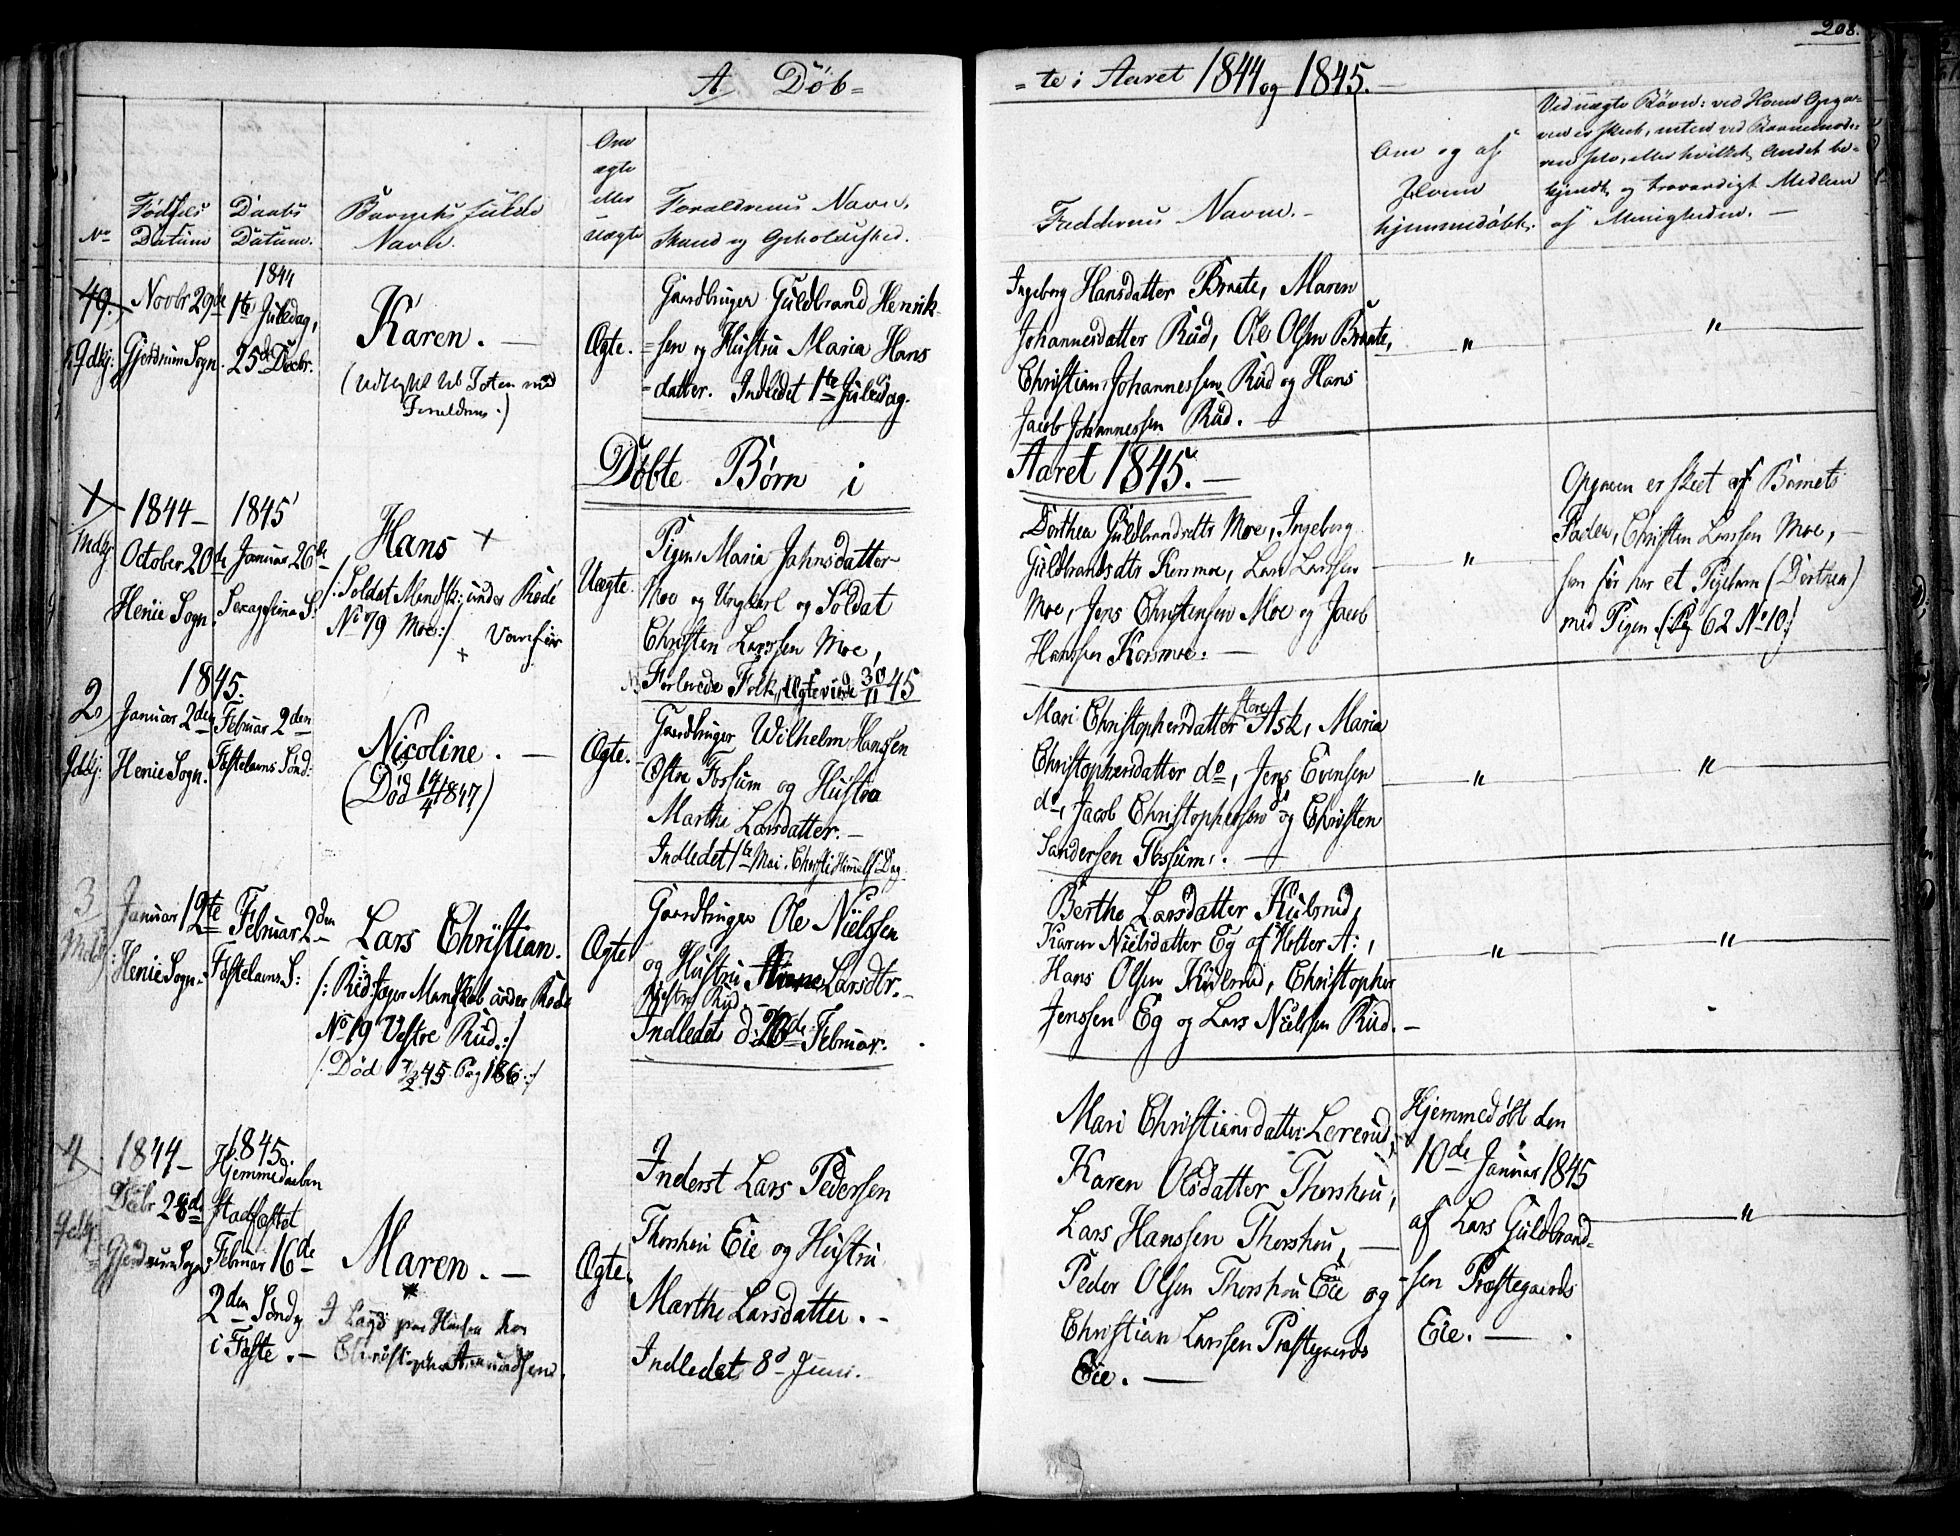 208.
A Döb=
=te i Aaret 1844 og 1845. —
No
Fødsels
Datum
Daabs
Datum.
Barnets fulde
Navn.
Om
ægte
eller
uægte
Forældrenes Navn,
Stand og Opholdssted.
Faddernes Navne. —
Om og af
hvem
hjemmedøbt.
Ved uægte Børn: ved Hvem Opga=
ven er skeet, enten ved Barnemode=
ren selv, eller hvilket andet be=
kjendt og troværdigt Medlem
af Menigheden. —
49.
Gdkj:
Novbr 29de
Gjerdrum Sogn.
1844
1te Juledag,
25de Decbr.
Karen. —
(udflyttet til Toten med
Forældrene.)
Ægte.
Gaardbruger Guldbrand Henrik-
=sen og Hustru Maria Hans
-datter. Indledet 1te Juledag.
Ingeborg Hansdatter Braate, Maren
Johannesdatter Rud, Ole Olsen Braate,
Christian Johannessen Rud og Hans
Jacob Johannessen Rud. —
"
"
Döbte Børn i
Aaret 1845. —
1
Mdkj
1844 —
October 20de
Henie Sogn.
1845
Januar 26de
Sexagesima S:
Hans +
/: Soldat Mandsk: under Rode
No 79 Moe :/ Vanfør
+
Uægte.
Pigen Maria Jahnsdatter
Moe og Ungkarl og Soldat
Christen Larssen Moe,
Forlovede Folk, Ægteviede 30/11 45
Dorthea Guldbrandsdtr Moe, Ingeborg
Guldbrandsdtr Kormoe, Lars Larssen
Moe, Jens Christensen Moe og Jacob
Hanssen Kormoe. —
"
Opgaven er skeet af Barnets
Fader, Christen Larssen Moe, —
han før har et Pigebarn (Dorthea)
med Pigen (Pag 62 No 10)
2
Gdkj:
1845.
Januar 2den
Henie Sogn.
Februar 2den
Fastelavns Sønd:
Nicoline. —
(Död 14/4 1847)
Ægte.
Gaardbruger Wilhelm Hanssen
Østre Fossum og Hustru
Marthe Larsdatter. —
Indledet 1te Mai. Christi Himmelf: Dag.
Mari Christophersdatter Store Ask, Maria
Christophersdatter do, Jens Evensen
do, Jacob Christophersen do og Christen
Sandersen Fossum. —
"
"
3
Mdkj:
Januar 19te
Henie Sogn.
Februar 2den
Fastelavns S:
Lars Christian.
/: Rid: Jæger Mandskab under Rode
No 19 Vestre Rud. :/
/: Död 7/2 45 Pag 186 :/
Ægte
Gaardbruger Ole Nielsen
og Hustru Anne Larsdtr. —
Vestre Rud. —
Indledet d: 20de Februar.
Berthe Larsdatter Kulsrud,
Karen Nielsdatter Eg af Holter A:,
Hans Olsen Kulsrud, Christopher
Jenssen Eg og Lars Nielsen Rud. —
"
"
4
Gdkj
1844 —
Decbr 28de
Gjerdrum Sogn
1845
Hjemmedaaben
stadfæstet
Februar 16de
2den Sönd.
i Faste. —
Maren. —
I Lægd paa Hustu hos
Christopher Amundsen.
Ægte.
Inderst Lars Pedersen
Thorshou Eie og Hustru
Marthe Larsdatter. —
Indledet 8d Juni.
Mari Christiansdatter Lererud,
Karen Olsdatter Thorshou,
Lars Hanssen Thorshou, —
Peder Olsen Thorshou Eie og
Christian Larssen Præstegaards
Eie. —
Hjemmedöbt den
10de Januar 1845
af Lars Guldbrand=
-sen Præstegaards
Eie. —
"